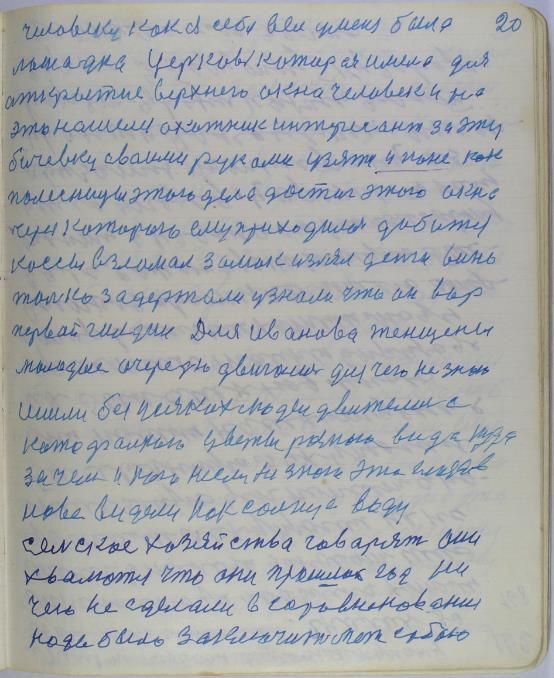 человеку как в себя вел у меня была 20
лошадка Церковь которая имела для
открытие верхнего окна человек и на
это нашели охотник интересант за эту
бичевку своими руками взяти и поне как
полесницы этого дела достиг этого окна
через которого ему приходилось добится
кассы взломал замок изял денги вино
только задержали узнали что он вор
первай гилдии Для Иванова женщены
молодые очередю двигоют для чего не знаю
ишли без всяких людей движелис
цветы разного вида куда
зачем и кого несли не знаю это
нова видели как солнце воду
селское хозяйства говарят они
хвалются что они прошлок год ни
чего не сделали в соревнованеи
надо было заключит меж собою